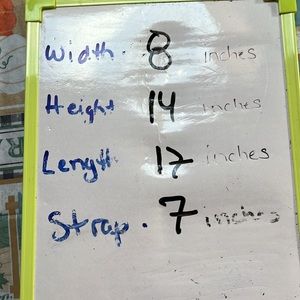 Width. 8 inches
Height 14 inches
Length. 17 inches
Strap. 7 inches